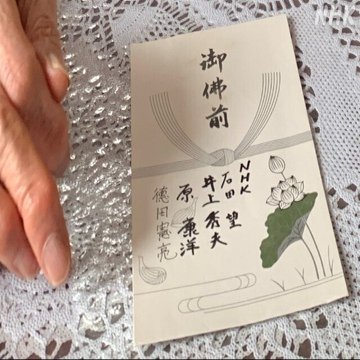 御佛前
NHK
石田 望
井上秀夫
原 兼洋
徳田憲亮
NHK